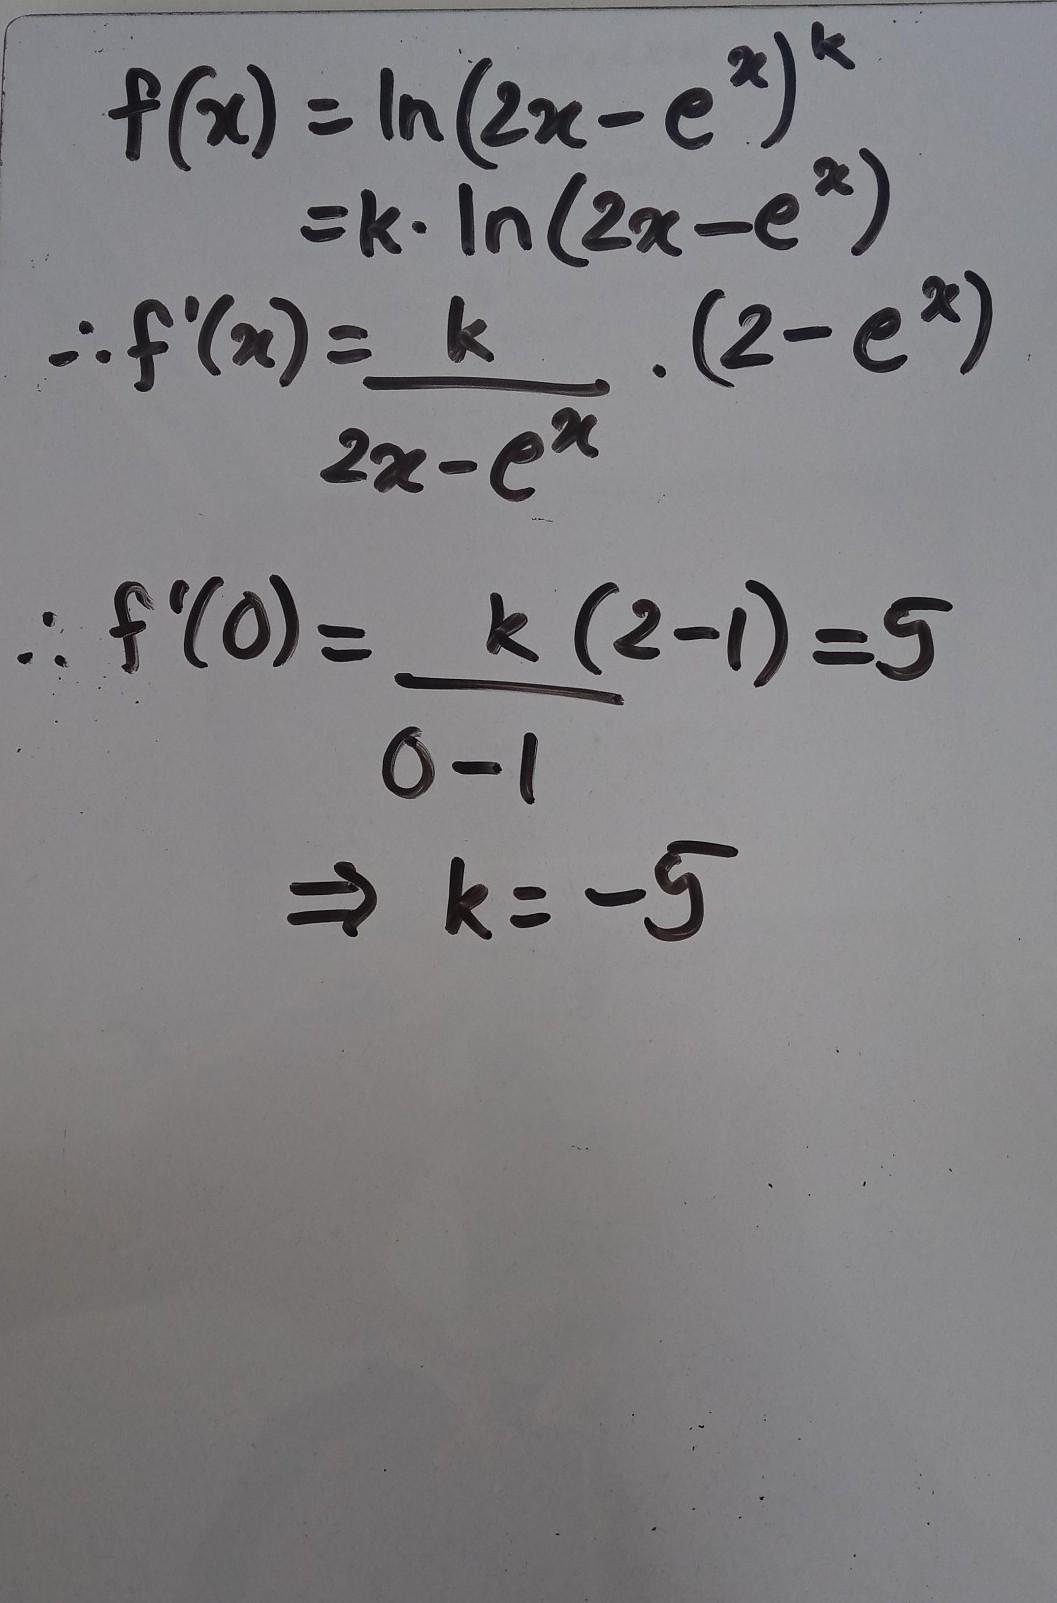 f(x) = ln(2x - e^x)^k
= k · ln(2x - e^x)
∴ f'(x) = k/(2x - e^x) · (2 - e^x)
∴ f'(0) = k(2-1)/(0-1) = 5
⇒ k = -5